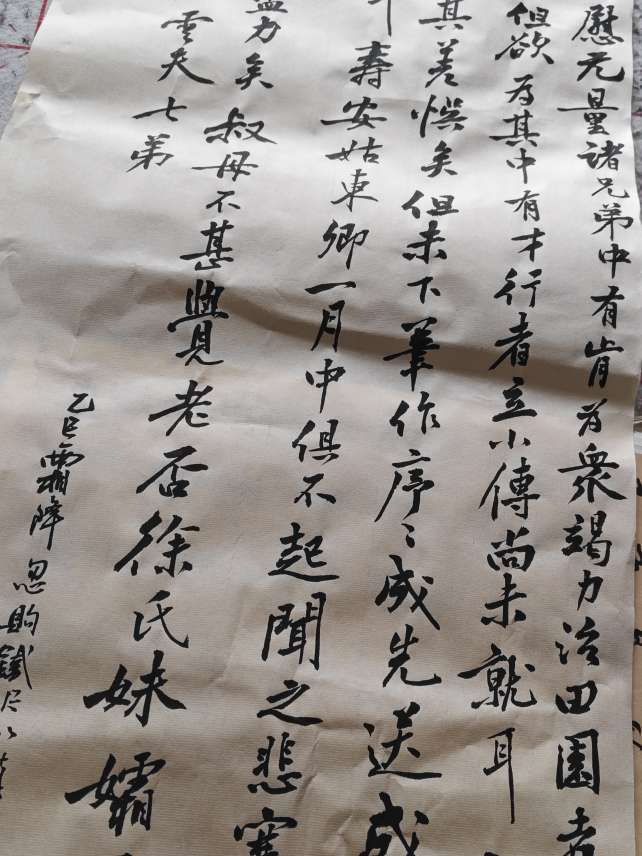 慰元量諸兄弟中有肯為衆竭力治田園者
但欲為其中有才行者立小傳尚未就耳
其差悮矣但未下筆作序〻成先送成
壽安姑東卿一月中俱不起聞之悲塞
力矣 叔母不甚覺老否徐氏妹孀
雲夫七弟
乙巳霜降